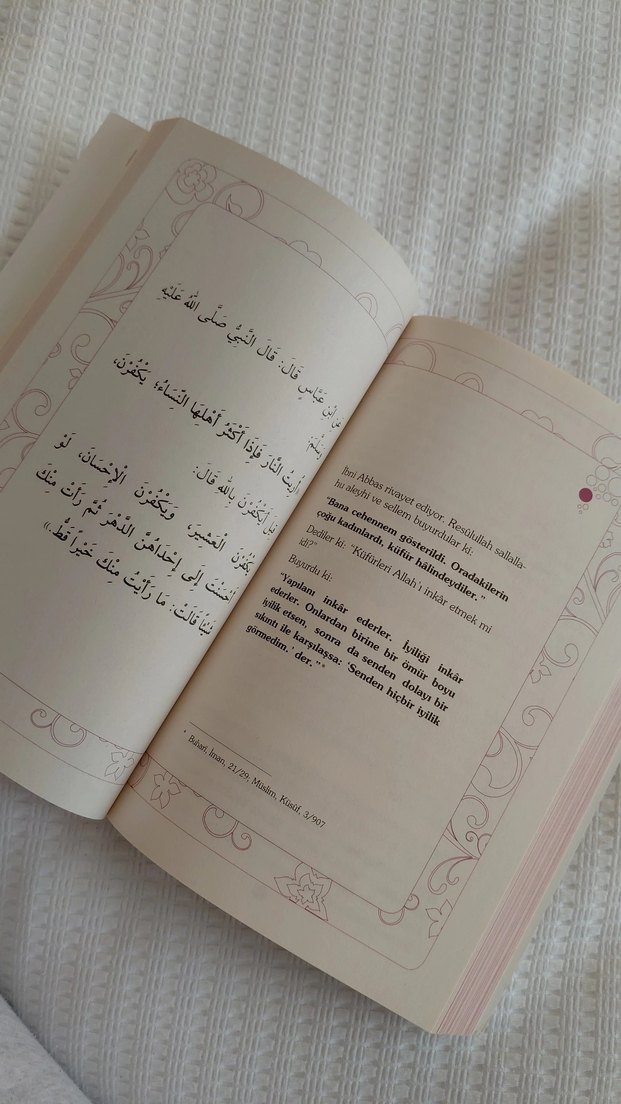 عَنِ ابْنِ عَبَّاسٍ قَالَ: قَالَ النَّبِيُّ صَلَّى اللهُ عَلَيْهِ
وَسَلَّمَ:
أُرِيتُ النَّارَ فَإِذَا أَكْثَرُ أَهْلِهَا النِّسَاءُ، يَكْفُرْنَ،
قِيلَ أَيَكْفُرْنَ بِاللهِ قَالَ:
يَكْفُرْنَ الْعَشِيرَ، وَيَكْفُرْنَ الْإِحْسَانَ، لَوْ
أَحْسَنْتَ إِلَى إِحْدَاهُنَّ الدَّهْرَ ثُمَّ رَأَتْ مِنْكَ
شَيْئًا قَالَتْ: مَا رَأَيْتُ مِنْكَ خَيْرًا قَطُّ.»
İbni Abbas rivayet ediyor. Resûlullah sallalla-
hu aleyhi ve sellem buyurdular ki:
"Bana cehennem gösterildi. Oradakilerin
çoğu kadınlardı, küfür hâlindeydiler."
Dediler ki: "Küfürleri Allah'ı inkâr etmek mi
idi?"
Buyurdu ki:
"Yapılanı inkâr ederler. İyiliği inkâr
ederler. Onlardan birine bir ömür boyu
iyilik etsen, sonra da senden dolayı bir
sıkıntı ile karşılaşsa: 'Senden hiçbir iyilik
görmedim.' der."*
* Buhari, İman, 21/29; Müslim, Küsûf, 3/907